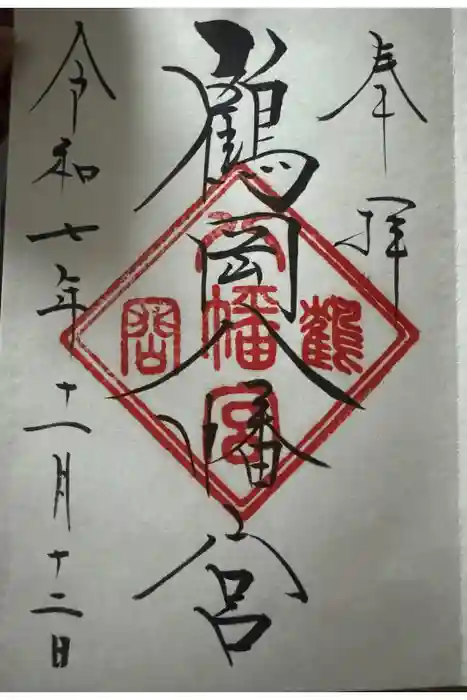 奉拝
鶴岡八幡宮
鶴岡
八幡宮
令和七年十一月十二日